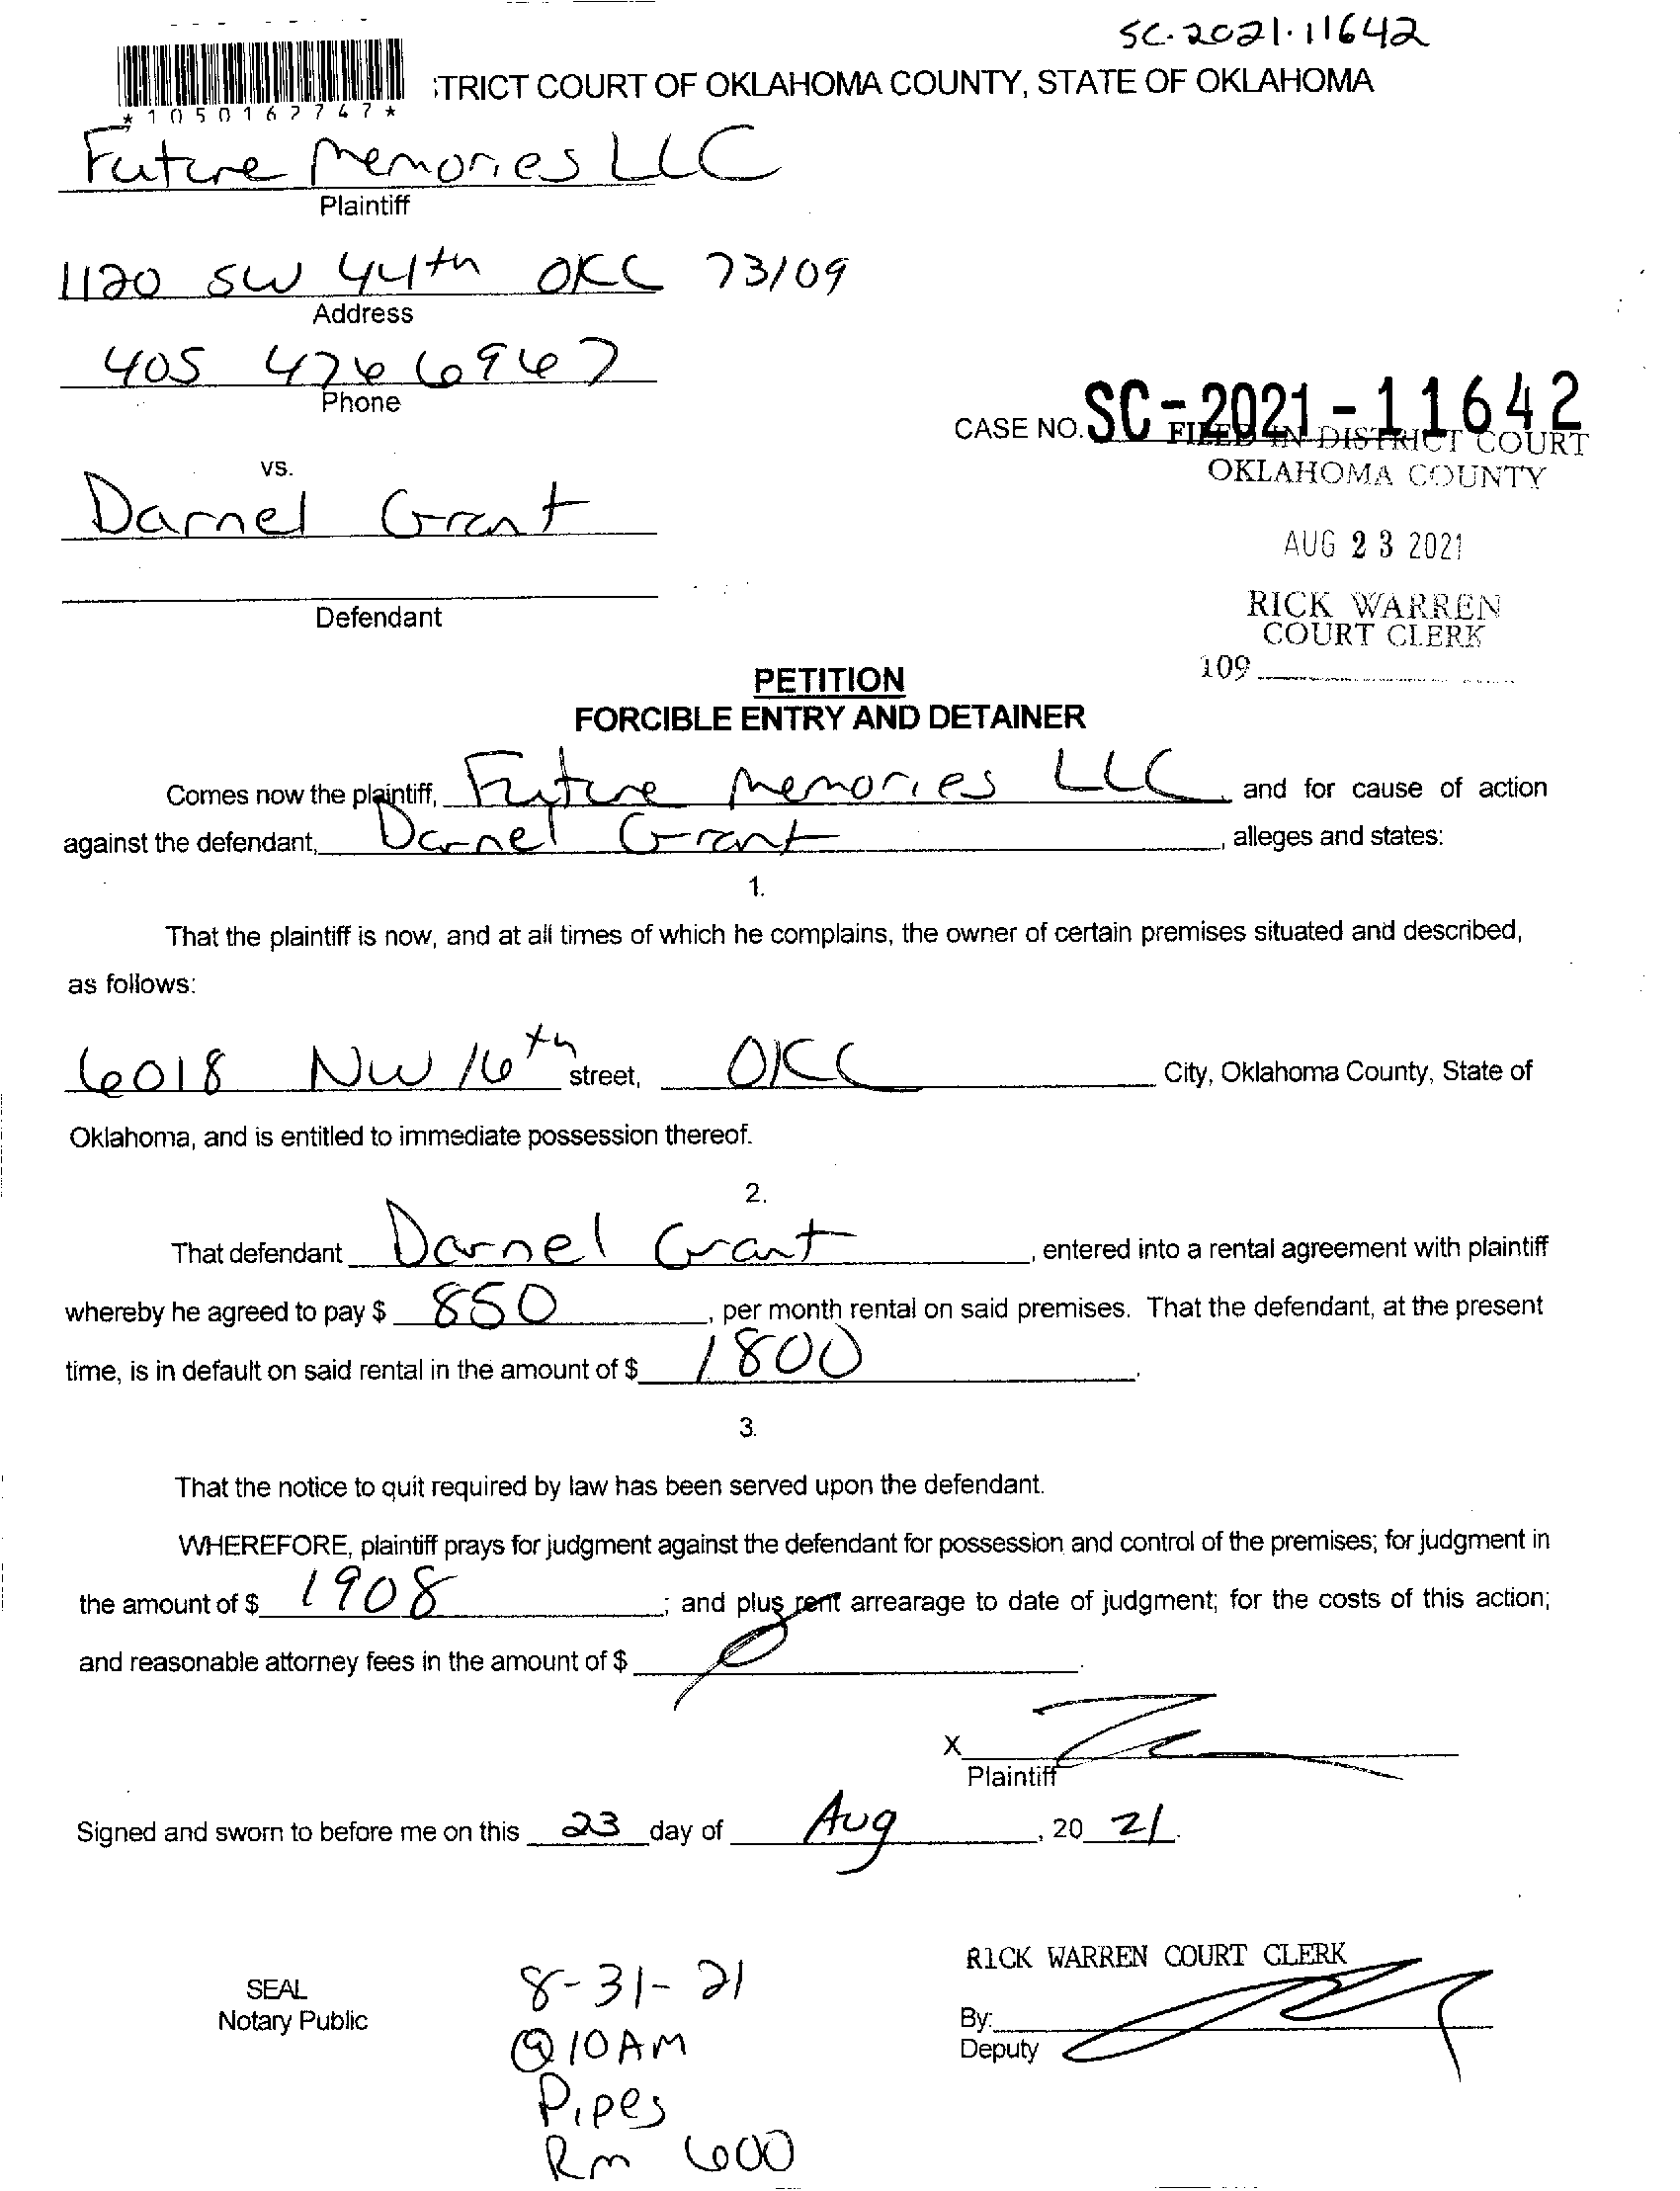 SC-2021-11642
*1050162747*
TRICT COURT OF OKLAHOMA COUNTY, STATE OF OKLAHOMA
Future Memories LLC
Plaintiff
1120 SW 44th OKC 73109
Address
405 476 6967
Phone
CASE NO. SC-2021-11642
FILED IN DISTRICT COURT
OKLAHOMA COUNTY
vs.
Darnel Grant
AUG 23 2021
Defendant
RICK WARREN
COURT CLERK
109
PETITION
FORCIBLE ENTRY AND DETAINER
Comes now the plaintiff, Future Memories LLC, and for cause of action
against the defendant, Darnel Grant, alleges and states:
1.
That the plaintiff is now, and at all times of which he complains, the owner of certain premises situated and described,
as follows:
6018 NW 16th street, OKC City, Oklahoma County, State of
Oklahoma, and is entitled to immediate possession thereof.
2.
That defendant Darnel Grant, entered into a rental agreement with plaintiff
whereby he agreed to pay $ 850, per month rental on said premises. That the defendant, at the present
time, is in default on said rental in the amount of $ 1800.
3.
That the notice to quit required by law has been served upon the defendant.
WHEREFORE, plaintiff prays for judgment against the defendant for possession and control of the premises; for judgment in
the amount of $ 1908; and plus rent arrearage to date of judgment; for the costs of this action;
and reasonable attorney fees in the amount of $ 0.
X
Plaintiff
Signed and sworn to before me on this 23 day of Aug, 20 21.
RICK WARREN COURT CLERK
SEAL
Notary Public
8-31-21
@ 10 AM
Pipes
Rm 600
By:
Deputy